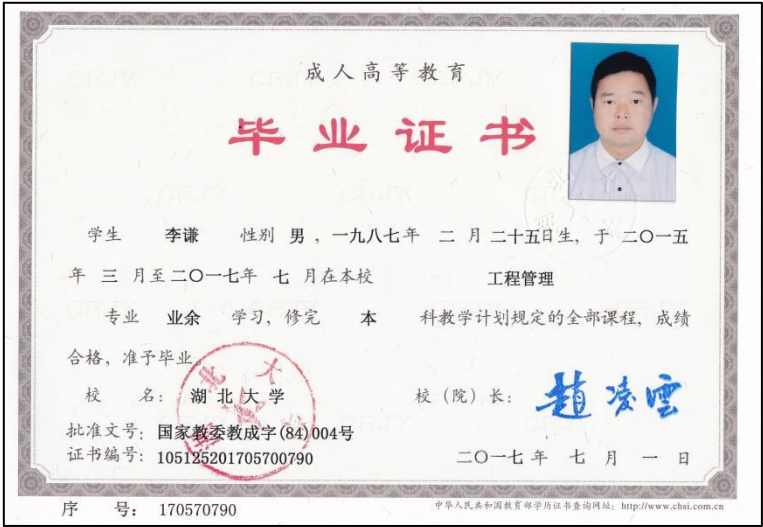 成人高等教育
毕业证书
学生 李谦 性别 男，一九八七年 二 月 二十五日生，于 二〇一五
年 三 月至二〇一七年 七 月在本校 工程管理
专业 业余 学习，修完 本 科教学计划规定的全部课程，成绩
合格，准予毕业。
校 名： 湖北大学 校（院）长： 趙凌雲
批准文号：国家教委教成字(84)004号
证书编号：105125201705700790 二〇一七年 七 月 一 日
序 号： 170570790 中华人民共和国教育部学历证书查询网址：http://www.chsi.com.cn